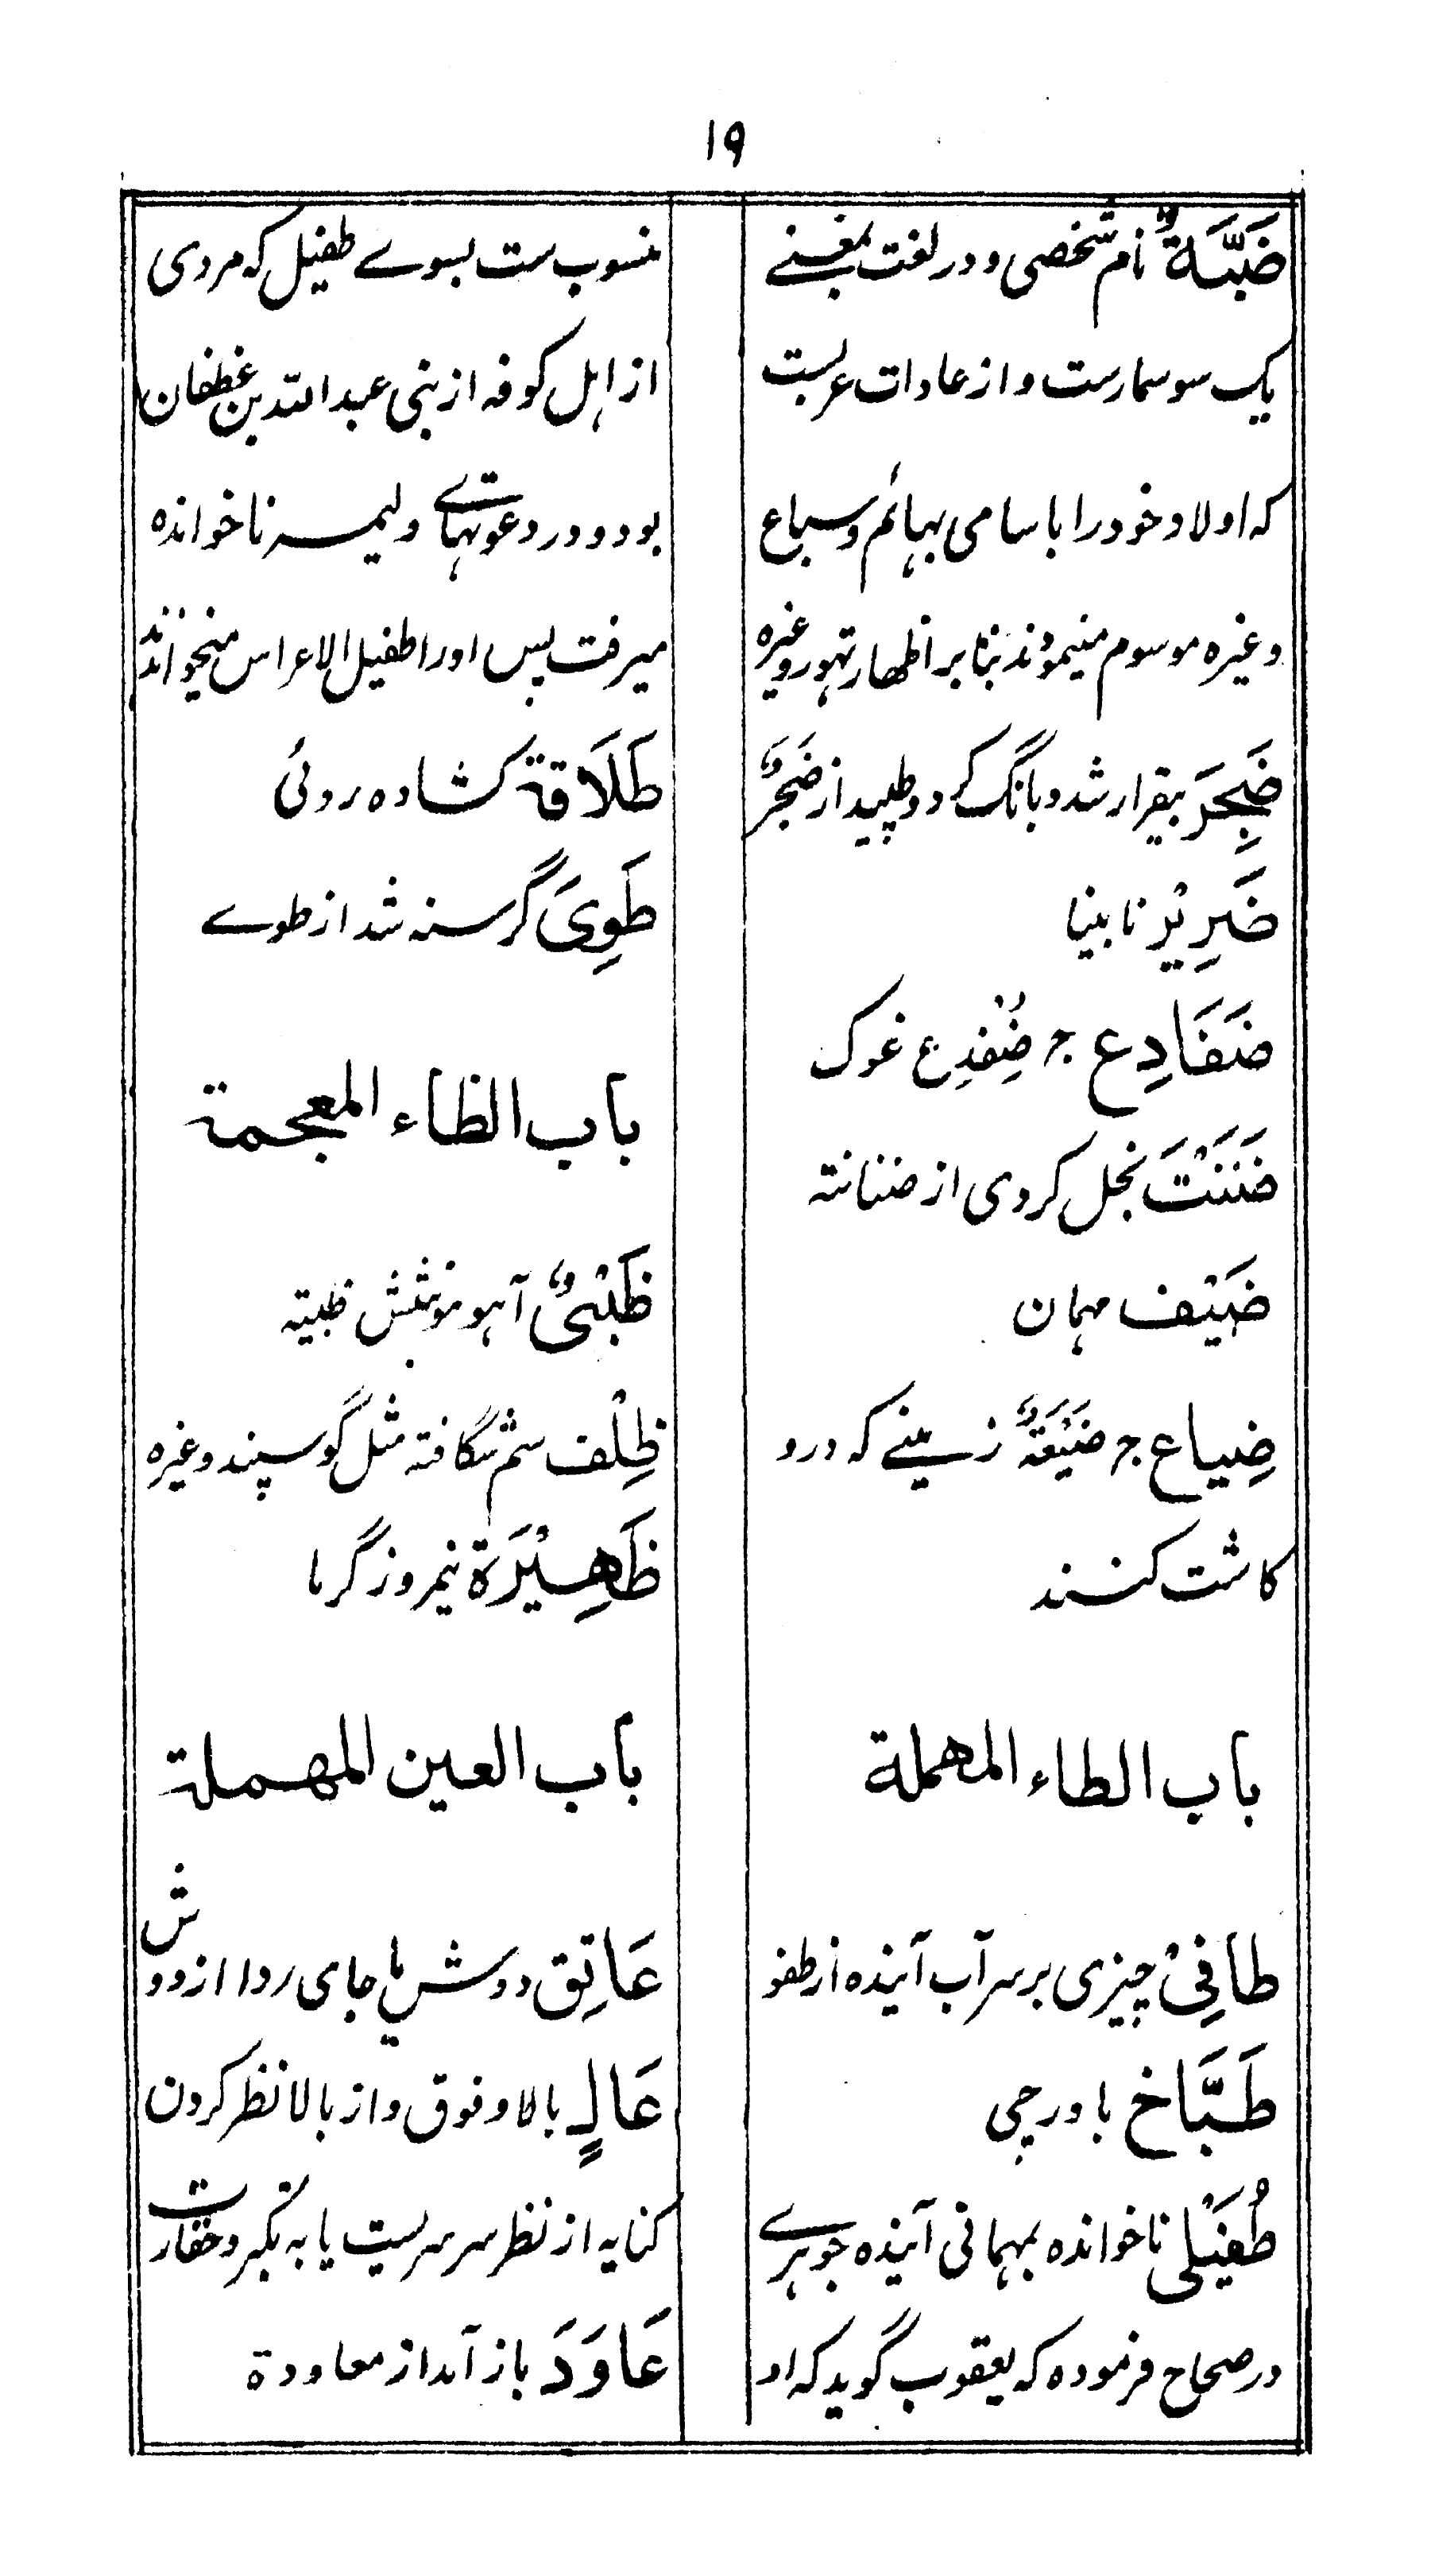 ۱۹
ضَبَّةٌ نام شخصی و در لغت بمعنے
یک سوسمارست و از عادات عربست
که اولاد خود را باسامی بهائم و سباع
وغیره موسوم مینمودند بنا بر اظهار تهور وغیره
ضَجِرَ بیقرار شد و بانگ کرد و طپید از ضَجَرٌ
ضَرِیْر نابینا
ضَفَادِع ج ضِفْدِع غوک
ضَنَنْتَ بخل کردی از ضنانته
ضَیْف مهمان
ضِیاع ج ضَیْعَةٌ زمینے که درو
کاشت کنند
باب الطاء المهملة
طافِیْ چیزی بر سر آب آینده از طفو
طَبَّاخ باورچی
طُفَیْلی ناخوانده بمهمانی آینده جوهرے
در صحاح فرموده که یعقوب گوید که او
منسوب ست بسوے طفیل که مردی
از اهل کوفه از بنی عبد الله بن غطفان
بود و در دعوتهاے ولیمه ناخوانده
میرفت پس او را طفیل الاعراس میخواندند
طَلَاقة کشاده روئی
طَوِیَ گرسنه شد از طوے
باب الظاء المعجمة
ظَبْیٌ آهو مونثش ظبیته
ظِلْف سُم شگافته مثل گوسپند وغیره
ظَهِیْرَة نیمروز گرما
باب العین المهملة
عَاتِق دوش یا جای ردا از دوش
عَالٍ بالا و فوق و از بالا نظر کردن
کنایه از نظر سرسریست یا به تکبر و حقارت
عَاوَدَ باز آمد از معاودة